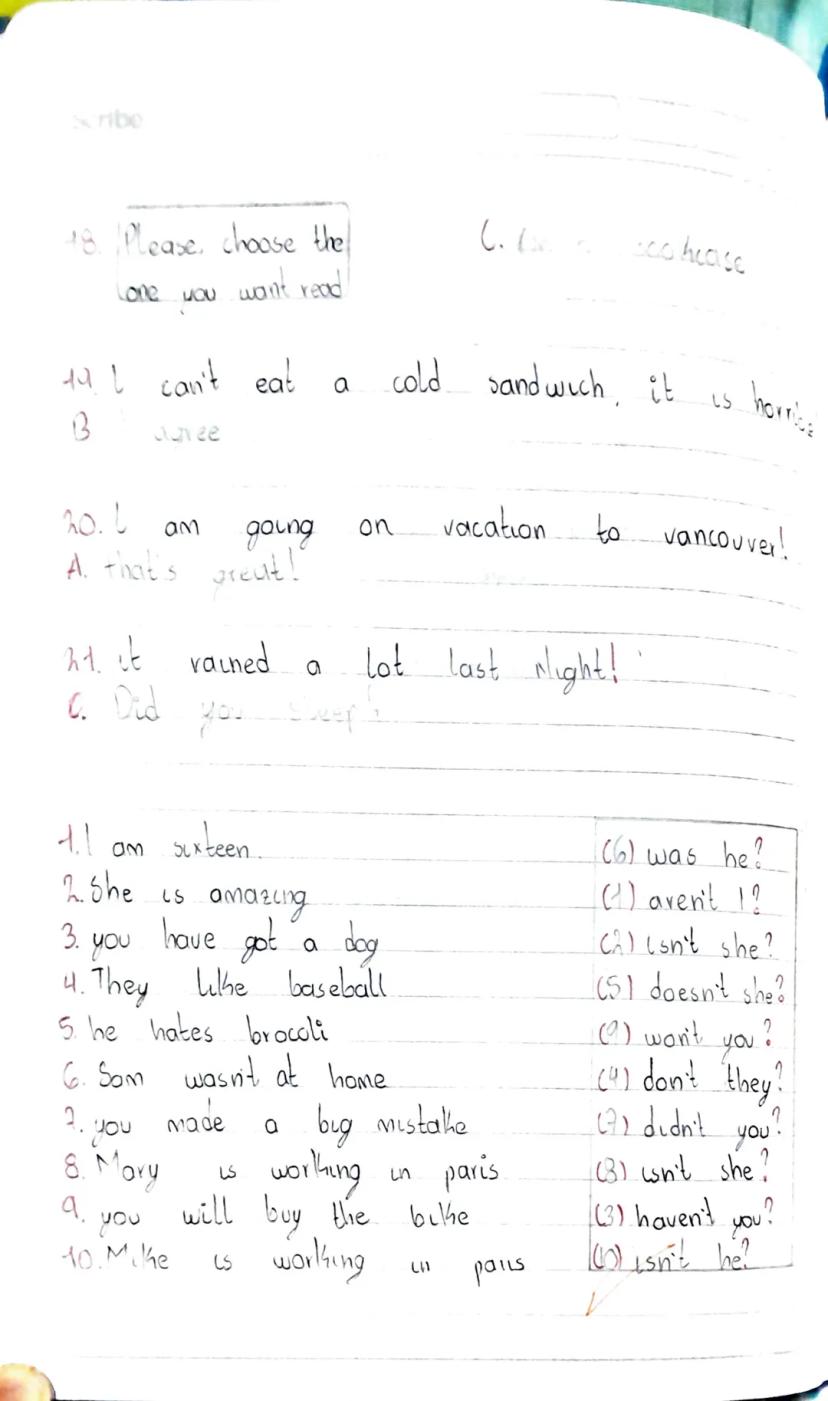 scribe
18. Please, choose the C.
one you want read
19. I can't eat a cold sandwich, it is
B agree
20. I am going on vacation to vancouver!
A. that's great!
21. it rained a lot last Night!
C. Did you sleep?
1. I am sixteen. (6) was he?
2. She is amazing (1) aren't I?
3. you have got a dog (2) isn't she?
4. They like baseball (5) doesn't she?
5. he hates brocoli (9) won't you?
6. Sam wasn't at home (4) don't they?
7. you made a big mistake (7) didn't you?
8. Mary is working in paris (8) isn't she?
9. you will buy the bike (3) haven't you?
10. Mike is working in paris (10) isn't he?